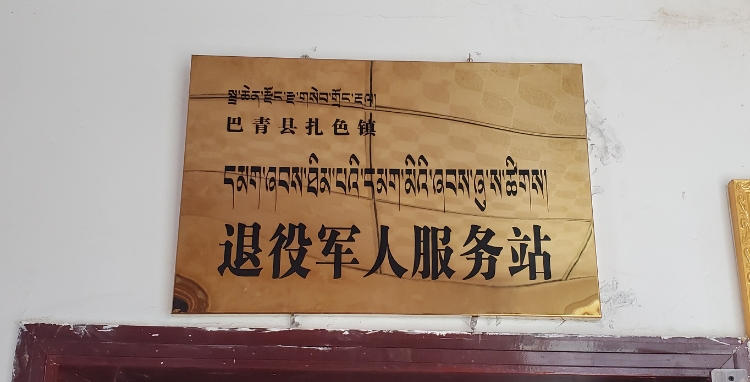 སྦྲ་ཆེན་རྫོང་རྩ་གསེབ་གྲོང་རྡལ།
巴青县扎色镇
དམག་ཞབས་ཐོན་པའི་དམག་མིའི་ཞབས་ཞུ་ས་ཚིགས།
退役军人服务站